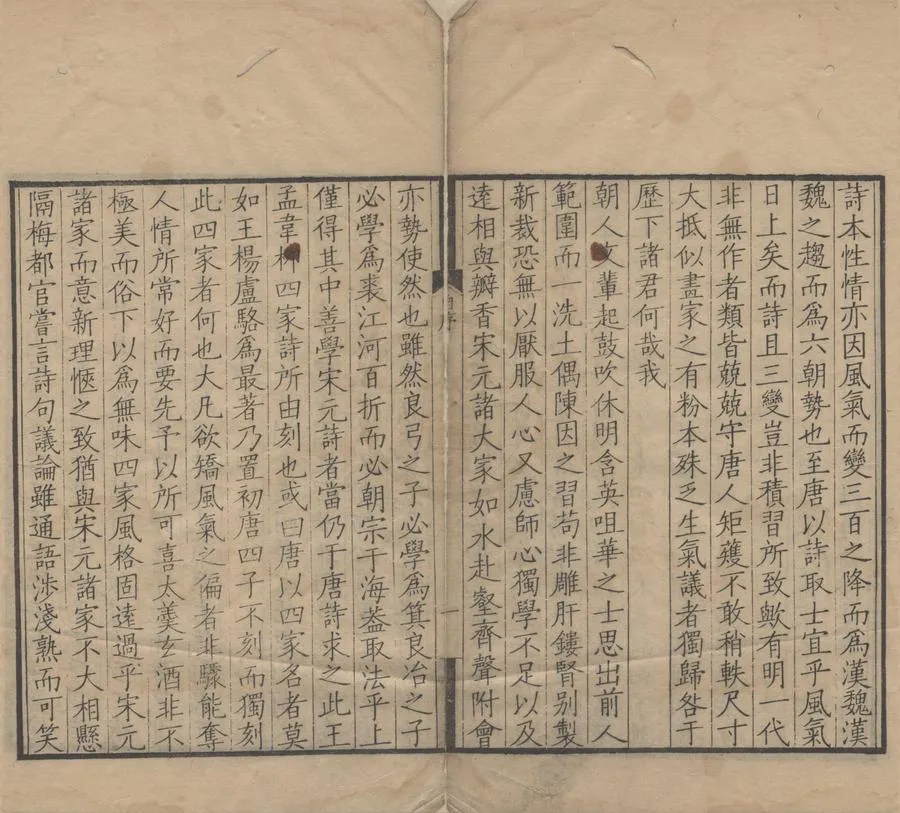 詩本性情亦因風氣而變三百之降而爲漢魏漢
魏之趨而爲六朝勢也至唐以詩取士宜乎風氣
日上矣而詩且三變豈非積習所致歟有明一代
非無作者類皆兢兢守唐人矩矱不敢稍軼尺寸
大抵似畫家之有粉本殊乏生氣議者獨歸咎于
歷下諸君何哉我
朝人文輩起鼓吹休明含英咀華之士思出前人
範圍而一洗土偶陳因之習苟非雕肝鏤腎別製
新裁恐無以厭服人心又慮師心獨學不足以及
遠相與瓣香宋元諸大家如水赴壑齊聲附會
序
一
亦勢使然也雖然良弓之子必學爲箕良冶之子
必學爲裘江河百折而必朝宗于海蓋取法乎上
僅得其中善學宋元詩者當仍于唐詩求之此王
孟韋柳四家詩所由刻也或曰唐以四家名者莫
如王楊盧駱爲最著乃置初唐四子不刻而獨刻
此四家者何也大凡欲矯風氣之偏者非驟能奪
人情所常好而要先予以所可喜太羹玄酒非不
極美而俗下以爲無味四家風格固遠過乎宋元
諸家而意新理愜之致猶與宋元諸家不大相懸
隔梅都官嘗言詩句議論雖通語涉淺熟而可笑